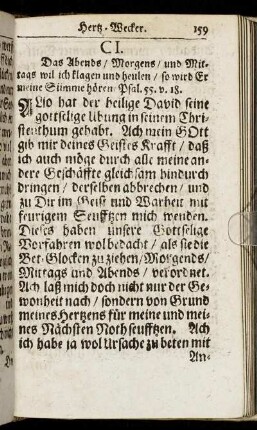 Hertz-Wecker. 159
CI.
Das Abends / Morgens / und Mit-
tags wil ich klagen und heulen / so wird Er
meine Stimme hören / Psal. 55. v. 18.
ALso hat der heilige David seine
gottselige Ubung in seinem Chri-
stenthum gehabt. Ach mein GOtt
gib mir deines Geistes Krafft / daß
ich auch möge durch alle meine an-
dere Geschäffte gleichsam hindurch
dringen / derselben abbrechen / und
zu Dir im Geist und Warheit mit
feurigem Seufftzen mich wenden.
Dieses haben unsere Gottselige
Vorfahren wol bedacht / als sie die
Bet-Glocken zu ziehen / Morgends /
Mittags und Abends / verordnet.
Ach laß mich doch nicht nur der Ge-
wonheit nach / sondern von Grund
meines Hertzens für meine und mei-
nes Nächsten Noth seufftzen. Ach
ich habe ja wol Ursache zu beten mit
An-